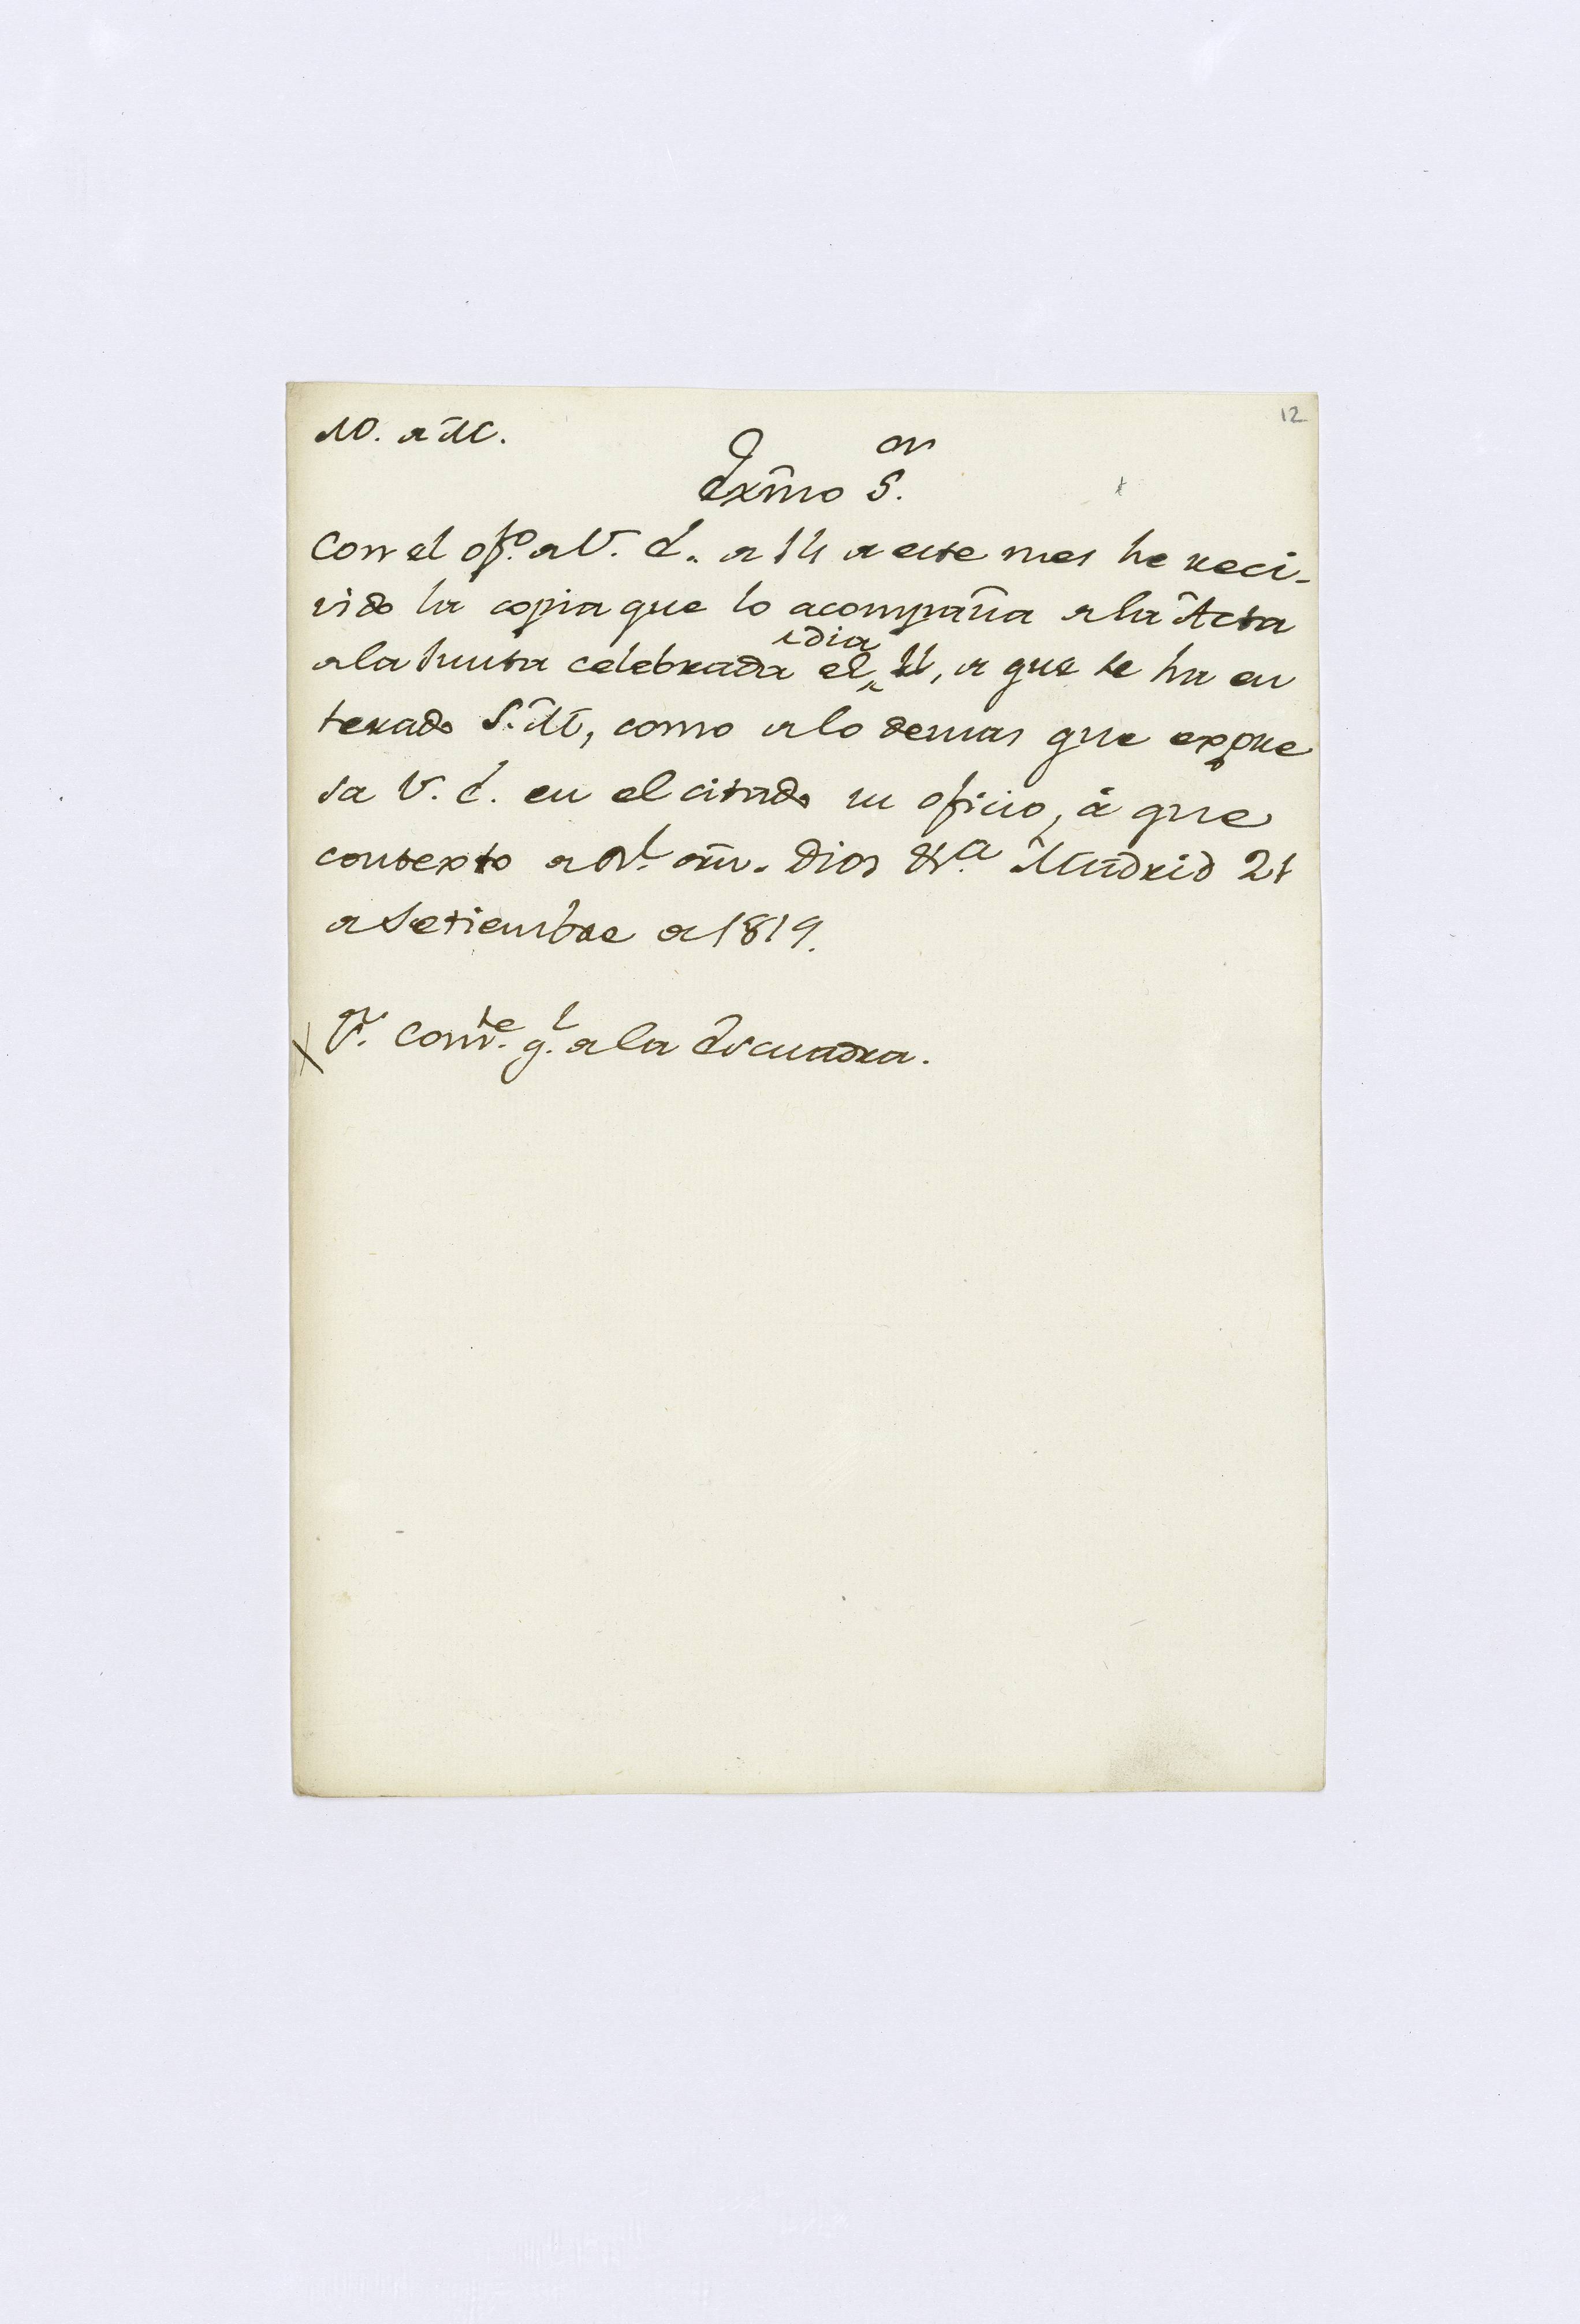 M.º de M.
12
Exmo S.or
Con el of.º de V. E. de 14 de este mes he reci-
vido la copia que lo acompaña de la Acta
de la Junta celebrada el dia 11, de que se ha en
terado S. M., como de lo demas que expre
sa V. E. en el citado su oficio, á que
contexto de Rl. orn. Dios &.a Madrid 21
de Setiembre de 1819.
S.or Com.te g.l de la Escuadra.